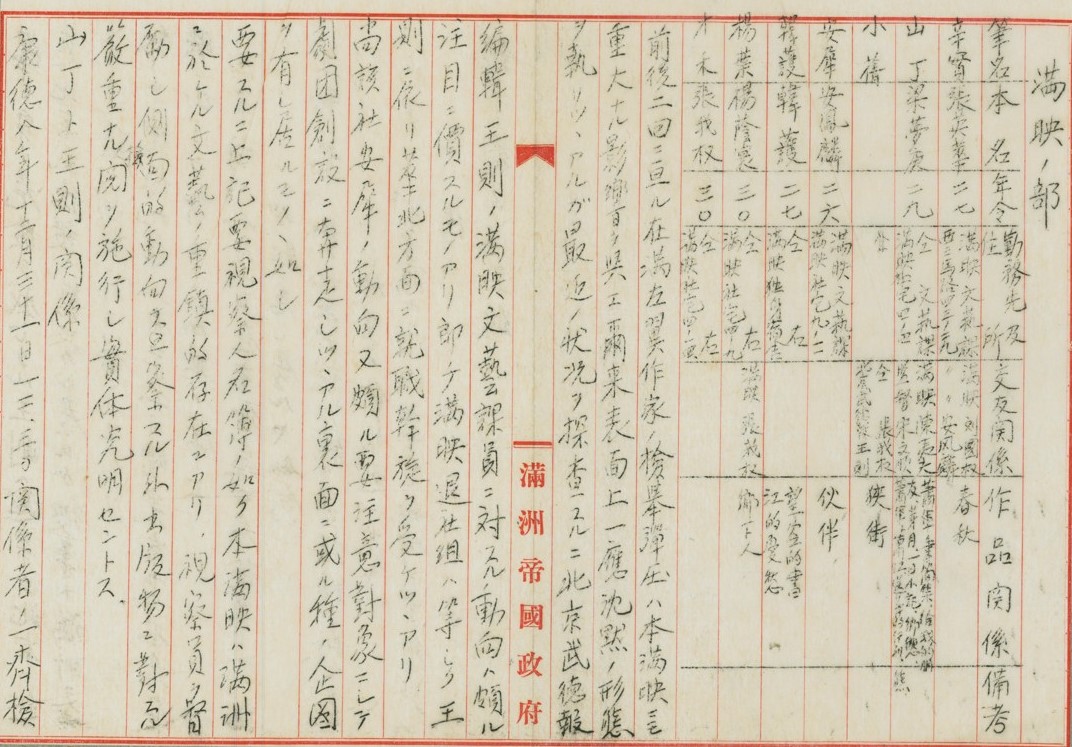 満映ノ部
筆名 本名 年令 勤務先及住所 交友関係 作品関係 備考
辛實 張英華 二七 満映文芸課 満映 劉國权 〃 安凤麟 春秋
山丁 梁夢庚 二九 仝 文芸課 満映
小蒨 仝 張我权 狭街
安犀 安鳳麟 二六 満映文芸課 満映社宅九ノ二 伙伴
韓護 韓護 二七 仝右 満映独身寮 望空的書 江的憂愁
楊葉 楊蔭寰 三〇 仝右 満映社宅四ノ九 満映 張我权 鄉下人
木禾 張我权 三〇 仝左 満映社宅
前後二回ニ亘ル在満左翼作家ノ檢挙弾圧ハ本満映ニモ
重大ナル影響ヲ與エ爾来表面上一應沈黙ノ形態
ヲ執リツヽアルガ最近ノ状況ヲ探査スルニ北京武德報
編輯王則ノ満映文藝課員ニ対スル動向ハ頗ル
注目ニ價スルモノアリ即チ満映退社組ハ等シク王
則ニ依リ華北方面ニ就職斡旋ヲ受ケツヽアリ
尚該社安犀ノ動向又頗ル要注意對象ニシテ
劇団創設ニ奔走シツヽアル裏面ニ或ル種ノ企図
ヲ有シ居ルモノヽ如シ
要スルニ上記要視察人名簿ノ如ク本満映ハ満洲
ニ於ケル文藝ノ重鎮的存在ニアリ、視察員ヲ督
励シ側面的動向ヲ査察スル外出版物ニ對シ
厳重ナル検閲ヲ施行シ實体究明セントス
山丁ト王則ノ関係
康德八年十二月三十一日一二・三〇 関係者ノ一齊檢
滿洲帝國政府